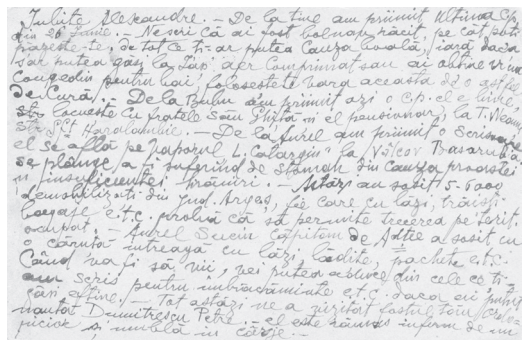 Iubite Alexandre. — De la tine am primit ultima C.p.
din 26 Iunie. — Ne scri că ai fost bolnav, răcit, pe cât poți
păzește-te, de tot ce ți-ar putea cauza boală, iară dacă
s-ar putea găsi la Iași aer comprimat sau ai obține vr'un
concediu pentru băi, folosește vara aceasta de o astfel
de cură. — De la Bubu am primit azi o C.p. el e bine,
locuește cu fratele său Ghiță și el pensionar, la T. Neamț
Str. Sft. Haralambie. — De la Aurel am primit o scrisoare,
el se află pe vaporul L. Catargiu" la Vâlcov Basarabia
se plânge a fi suferind de stomac din cauza proastei
și insuficientei hrăniri. — Astăzi au sosit 5-6000
demobilizați din jud. Argeș, fie care cu lăzi, trăisti
bagaje e.t.c. probă că, se permite trecerea pe terit.
ocupat. — Aurel Suciu căpitan de a sosit cu
o căruță întreagă cu lăzi, ladițe, pachete e.t.c.
Când va fi să vii, vei putea aduce din cele ce ți-
am scris pentru îmbrăcăminte e.t.c. dacă ai putut
găsi ceva. — Tot astăzi ne a vizitat fostul tău
Dumitrescu Petre — el este rămas infirm de un
picior și umblă în cârje. —